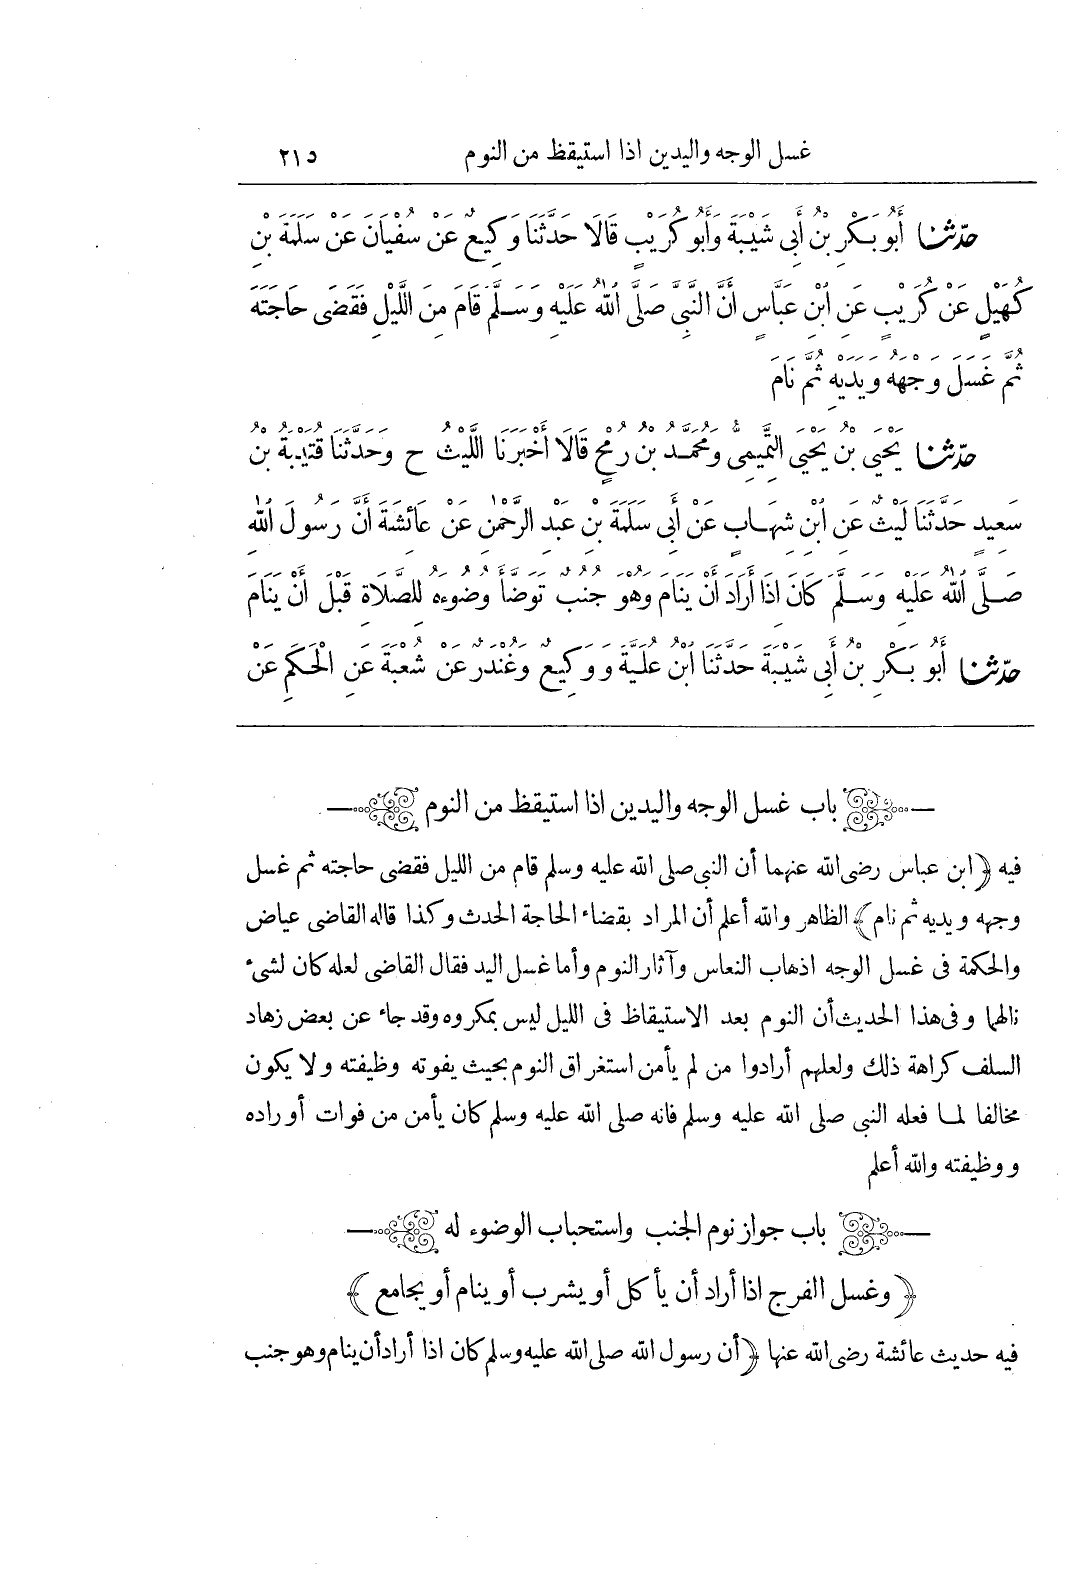 غسل الوجه واليدين اذا استيقظ من النوم ٢١٥
حدّثنا أَبُو بَكْرِ بْنُ أَبِي شَيْبَةَ وَأَبُو كُرَيْبٍ قَالَا حَدَّثَنَا وَكِيعٌ عَنْ سُفْيَانَ عَنْ سَلَمَةَ بْنِ
كُهَيْلٍ عَنْ كُرَيْبٍ عَنِ ابْنِ عَبَّاسٍ أَنَّ النَّبِيَّ صَلَّى اللهُ عَلَيْهِ وَسَلَّمَ قَامَ مِنَ اللَّيْلِ فَقَضَى حَاجَتَهُ
ثُمَّ غَسَلَ وَجْهَهُ وَيَدَيْهِ ثُمَّ نَامَ
حدّثنا يَحْيَى بْنُ يَحْيَى التَّمِيمِيُّ وَمُحَمَّدُ بْنُ رُمْحٍ قَالَا أَخْبَرَنَا اللَّيْثُ ح وَحَدَّثَنَا قُتَيْبَةُ بْنُ
سَعِيدٍ حَدَّثَنَا لَيْثٌ عَنِ ابْنِ شِهَابٍ عَنْ أَبِي سَلَمَةَ بْنِ عَبْدِ الرَّحْمٰنِ عَنْ عَائِشَةَ أَنَّ رَسُولَ اللهِ
صَلَّى اللهُ عَلَيْهِ وَسَلَّمَ كَانَ اذَا أَرَادَ أَنْ يَنَامَ وَهُوَ جُنُبٌ تَوَضَّأَ وُضُوءَهُ لِلصَّلَاةِ قَبْلَ أَنْ يَنَامَ
حدّثنا أَبُو بَكْرِ بْنُ أَبِي شَيْبَةَ حَدَّثَنَا ابْنُ عُلَيَّةَ وَوَكِيعٌ وَغُنْدَرٌ عَنْ شُعْبَةَ عَنِ الْحَكَمِ عَنْ
باب غسل الوجه واليدين اذا استيقظ من النوم
فيه ﴿ابن عباس رضى الله عنهما أن النبى صلى الله عليه وسلم قام من الليل فقضى حاجته ثم غسل
وجهه ويديه ثم نام﴾ الظاهر والله أعلم أن المراد بقضاء الحاجة الحدث وكذا قاله القاضى عياض
والحكمة فى غسل الوجه اذهاب النعاس وآثار النوم وأما غسل اليد فقال القاضى لعله كان لشىء
نالهما وفى هذا الحديث أن النوم بعد الاستيقاظ فى الليل ليس بمكروه وقد جاء عن بعض زهاد
السلف كراهة ذلك ولعلهم أرادوا من لم يأمن استغراق النوم بحيث يفوته وظيفته ولا يكون
مخالفا لما فعله النبى صلى الله عليه وسلم فانه صلى الله عليه وسلم كان يأمن من فوات أوراده
ووظيفته والله أعلم
باب جواز نوم الجنب واستحباب الوضوء له
﴿وغسل الفرج اذا أراد أن يأكل أو يشرب أو ينام أو يجامع﴾
فيه حديث عائشة رضى الله عنها ﴿أن رسول الله صلى الله عليه وسلم كان اذا أراد أن ينام وهو جنب